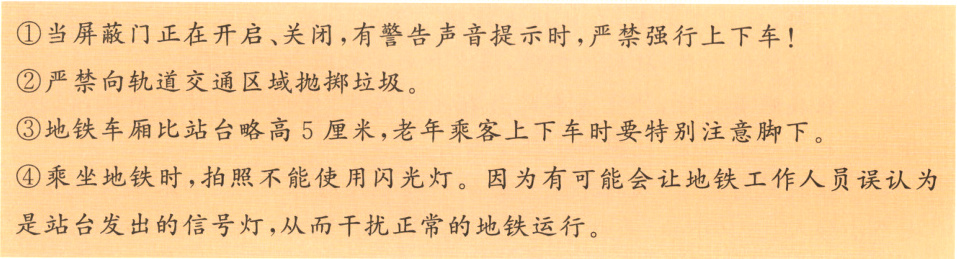 ①当屏蔽门正在开启、关闭,有警告声音提示时,严禁强行上下车!
②严禁向轨道交通区域抛掷垃圾。
③地铁车厢比站台略高 5 厘米,老年乘客上下车时要特别注意脚下。
④乘坐地铁时,拍照不能使用闪光灯。因为有可能会让地铁工作人员误认为
是站台发出的信号灯,从而干扰正常的地铁运行。